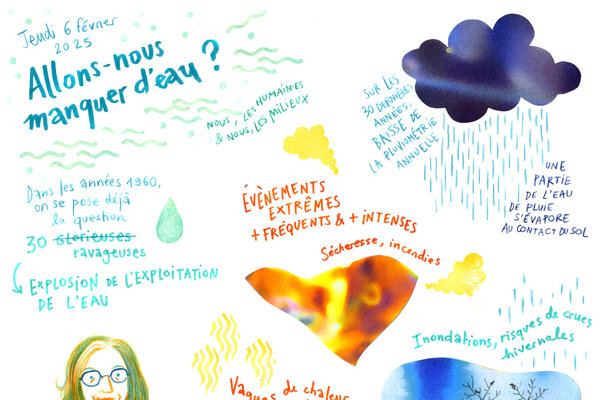 Jeudi 6 février
2025
Allons-nous
manquer d'eau ?
NOUS, LES HUMAIN·ES
& NOUS, LES MILIEUX
SUR LES
30 DERNIÈRES
ANNÉES,
BAISSE DE
LA PLUVIOMÉTRIE
ANNUELLE
UNE
PARTIE
DE L'EAU
DE PLUIE
S'ÉVAPORE
AU CONTACT DU SOL
Dans les années 1960,
on se pose déjà
la question
30 glorieuses
ravageuses
EXPLOSION DE L'EXPLOITATION
DE L'EAU
ÉVÈNEMENTS
EXTRÊMES
+ FRÉQUENTS & + INTENSES
Sécheresse, incendies
Inondations, risques de crues
hivernales
Vagues de chaleur